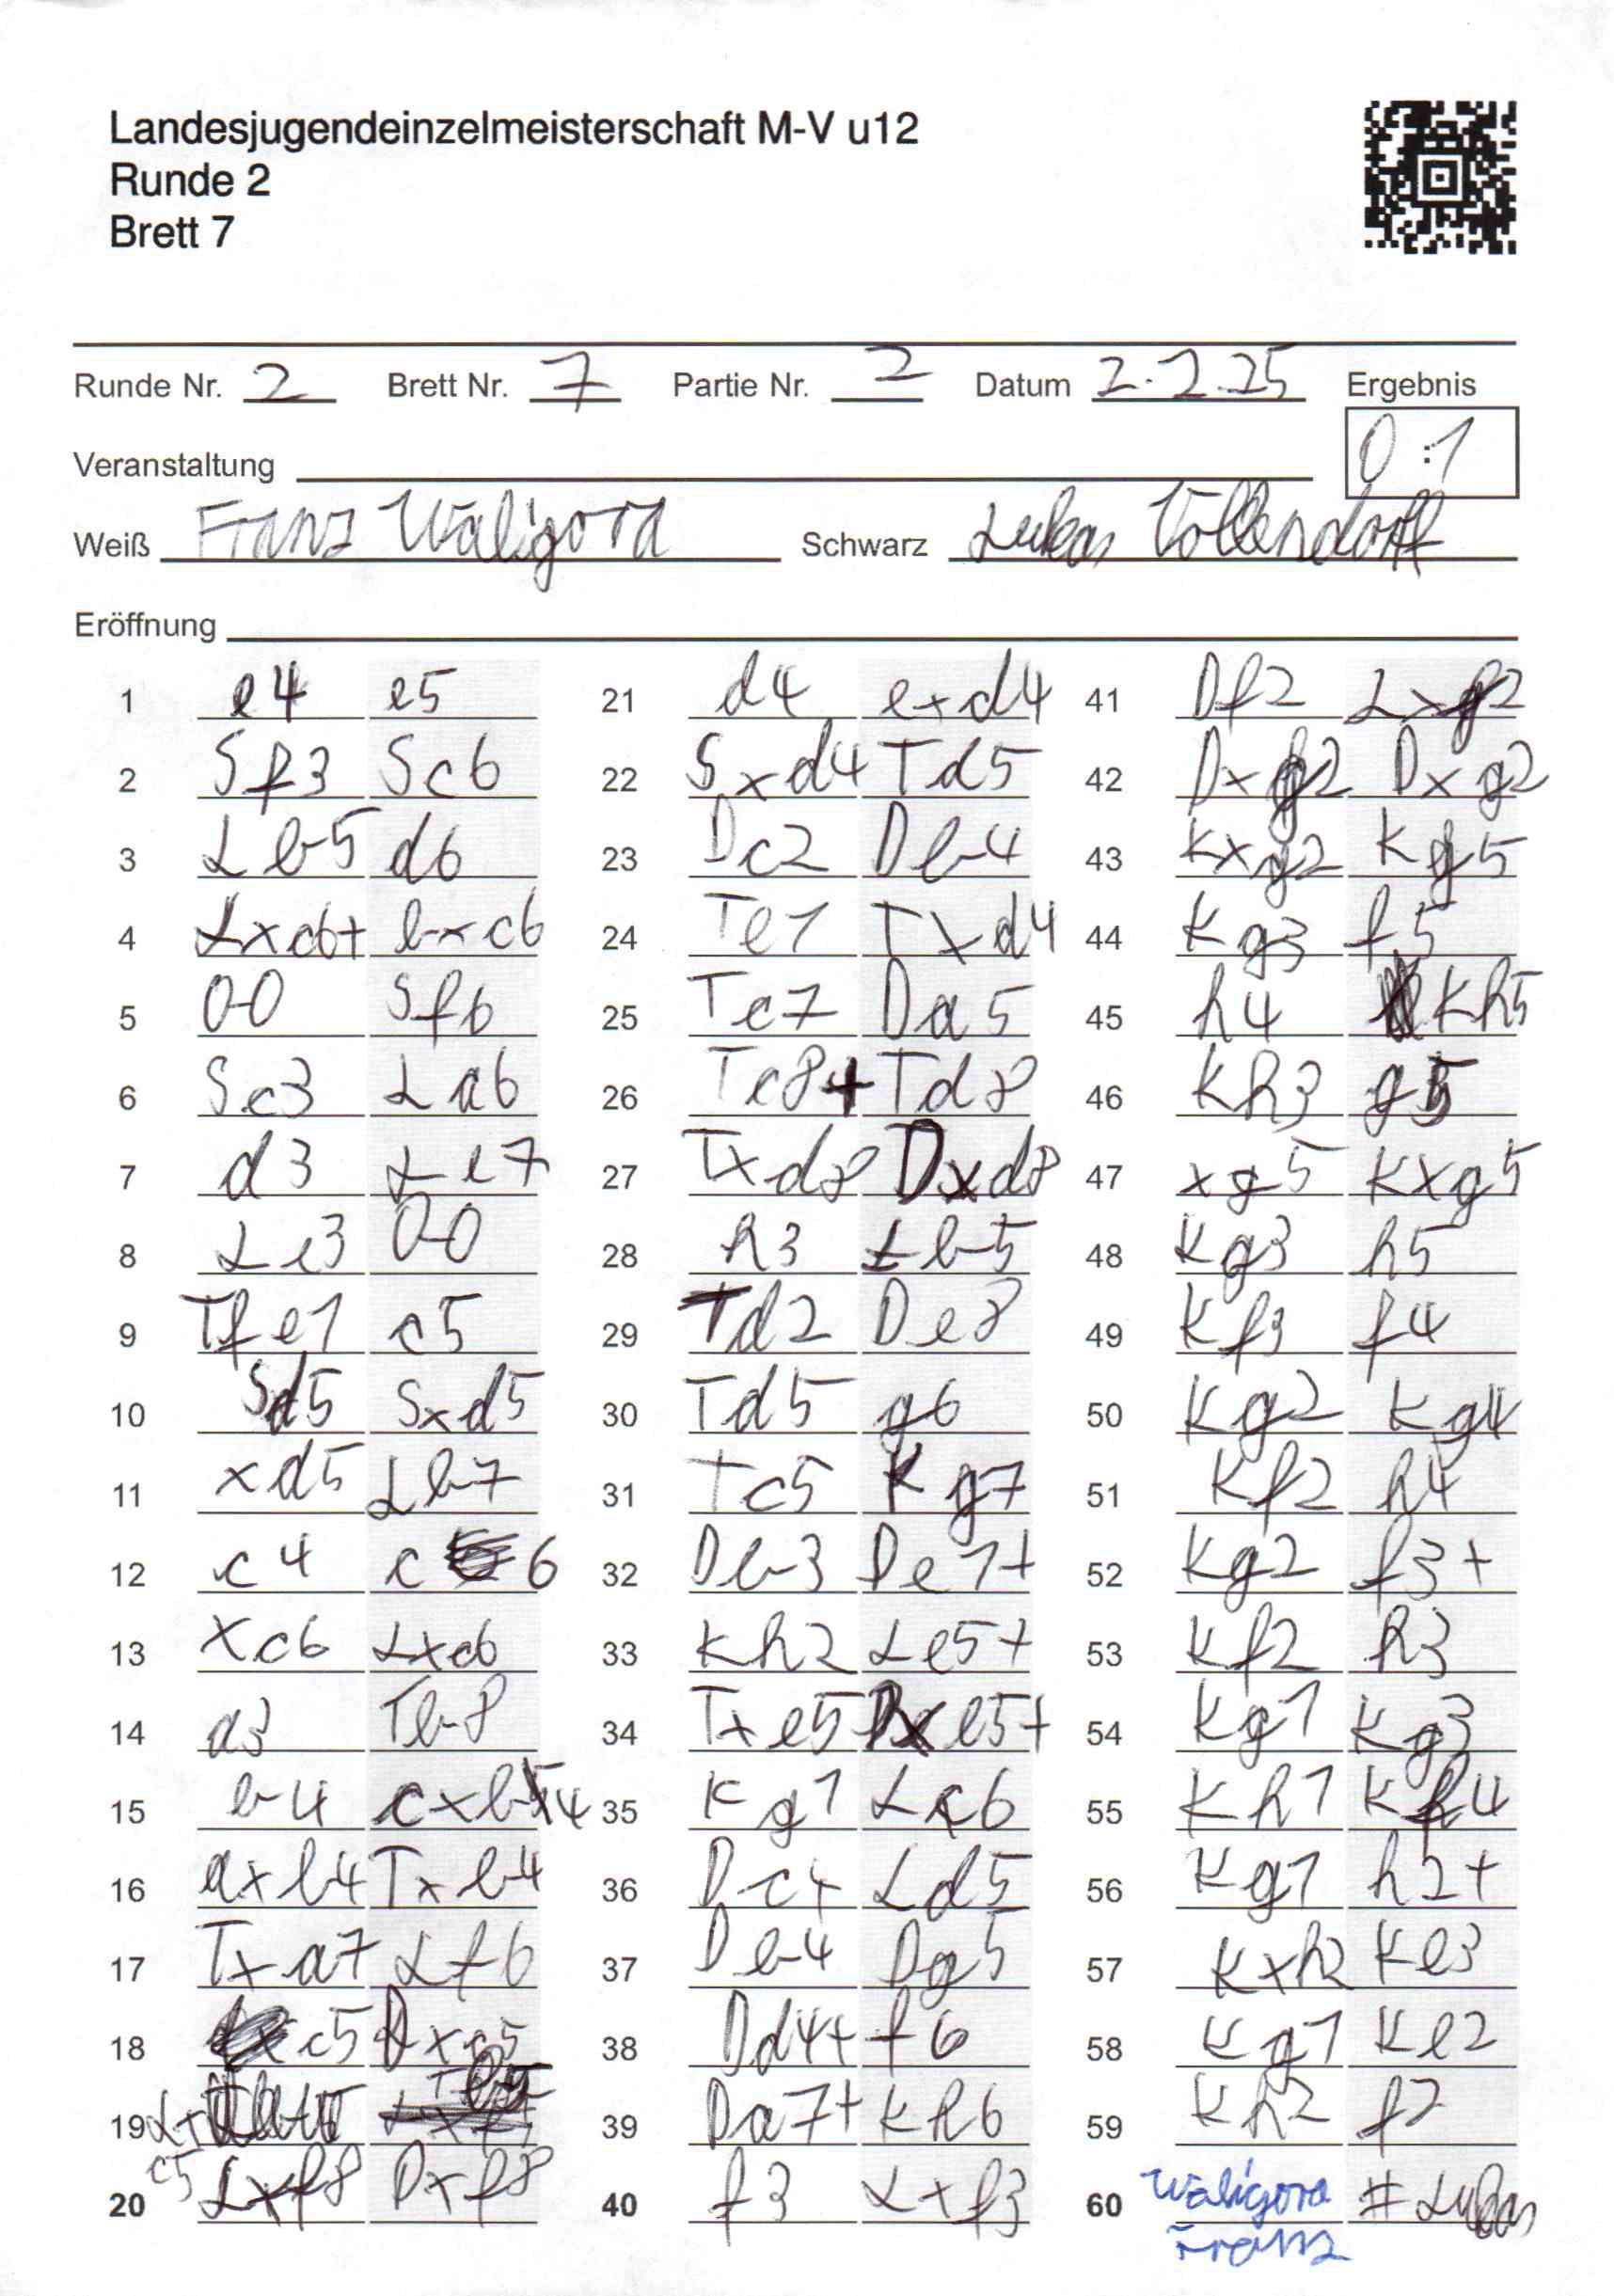 Landesjugendeinzelmeisterschaft M-V u12
Runde 2
Brett 7
Runde Nr. 2 Brett Nr. 7 Partie Nr. 2 Datum 2.2.25 Ergebnis
Veranstaltung 0:1
Weiß Franz Waligora Schwarz Lukas Vollendorff
Eröffnung
1 e4 e5 21 d4 exd4 41 Df2 Lxg2
2 Sf3 Sc6 22 Sxd4 Td5 42 Dxg2 Dxg2
3 Lb5 d6 23 Dc2 Db4 43 Kxg2 Kg5
4 Lxc6+ bxc6 24 Te1 Txd4 44 Kg3 f5
5 0-0 Sf6 25 Te7 Da5 45 h4 Kh5
6 Sc3 La6 26 Te8+ Td8 46 Kh3 g5
7 d3 Le7 27 Txd8 Dxd8 47 xg5 Kxg5
8 Le3 0-0 28 h3 Lb5 48 Kg3 h5
9 Tfe1 c5 29 Td2 De8 49 Kf3 f4
10 Sd5 Sxd5 30 Td5 g6 50 Kg2 Kg4
11 xd5 Lb7 31 Tc5 Kg7 51 Kf2 h4
12 c4 c6 32 Db3 De1+ 52 Kg2 f3+
13 xc6 Lxc6 33 Kh2 Le5+ 53 Kf2 h3
14 a3 Tb8 34 Txe5 Dxe5+ 54 Kg1 Kg3
15 b4 cxb4 35 Kg1 Lc6 55 Kh1 Kh4
16 axb4 Txb4 36 Dc4 Ld5 56 Kg1 h2+
17 Txa7 Lf6 37 Db4 Dg5 57 Kxh2 Ke3
18 c5 Dxc5 38 Dd4+ f6 58 Kg1 Ke2
19 Lx 39 Da7+ Kh6 59 Kh2 f2
c5
20 Lxf8 Dxf8 40 f3 Lxf3 60 Waligora # Lukas
Franz